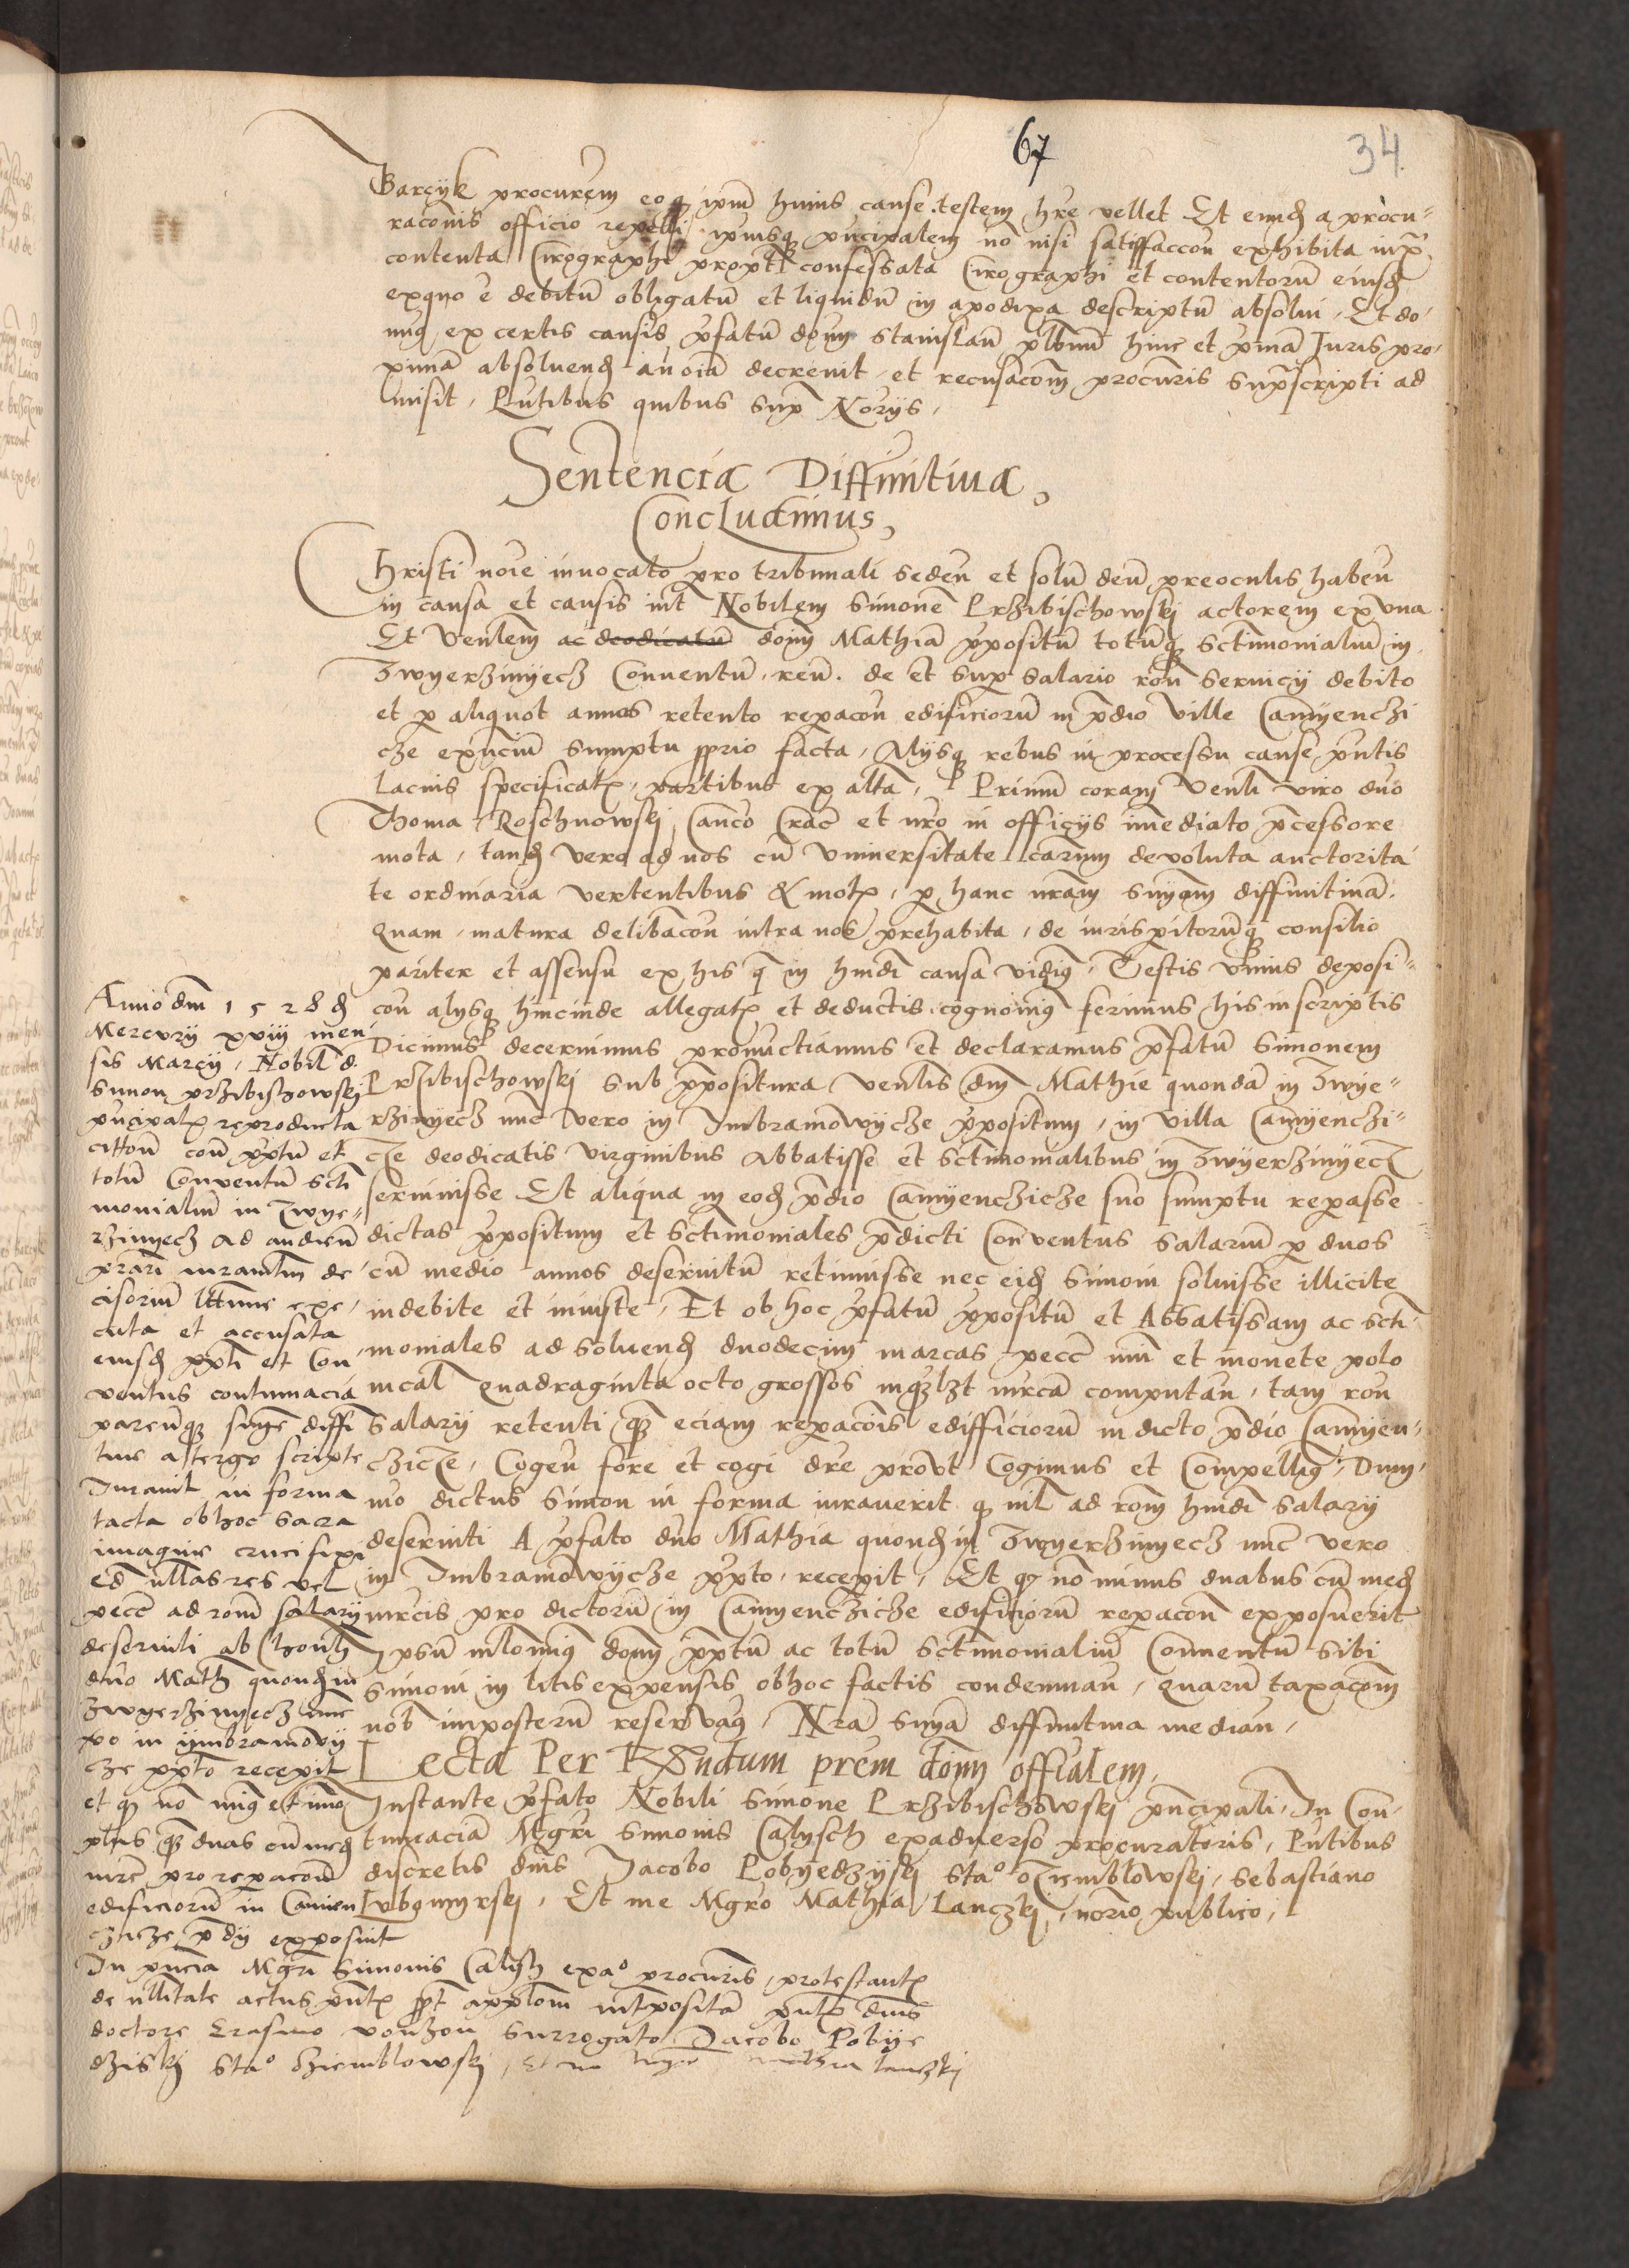 67
34
Garcyk procurem eo q ipm huius cause testem hre vellet Et eundē a procu-
racōnis officio repelli ipmsq prīcipalem no nisi satisfaccōn exhibita in p̄
contenta Cirographi propter confessata Cirographi et contentorū eiusdē
ex quo ē debitū obligatū et liquidū in apodixa descriptū absolui, Et do-
nus ex certis causis p̄fatū dōnm Stanislaū plbnū hinc et p̄maā Juris pro-
ximā absoluendū an oīa decreuit, et recusacōm procuris suprascripti ad
misit, Pn̄tibus quibus sup̄ Norijs,
Sentencia Diffinitiua
Concludimus,
Christi noīe inuocato pro tribunali seden et solū deū preoculis haben
in causa et causis int Nobilem Simonē Przibischowskj actorem ex vna
Et Venlem ac deodicatū dōnm Mathiā p̄positū totūq sctīmonialiū in
Zwyerzinyecz Conuentū, reū. de et sup salario rōn seruicij debito
et p aliquot annos retento repacōn edificiorū in p̄dio ville Camyenczi
cze ex n̄ciū sumptu p̄prio facta, Alijsq rebus in processu cause pn̄tis
lacius specificatꝭ, partibus ex altā, Primū coram Venli viro dno
Thoma Roschnowskj, Canco Crac et nr̄o in officijs imediato p̄cessore
mota, tandē vero ad nos cū vniuersitate carum deuoluta auctorita-
te ordinaria vertentibus & motꝭ, p hanc nr̄am snīam diffinitiuā,
quam, matura delibacōn intra nos prehabita, de iurisp̄itorūq consilio
pariter et assensu ex his q̄ in hmōi causa vidimꝰ, Testis vnius deposi-
con alijsq hincinde allegatꝭ et deductis cognouimꝰ ferimus his inscriptis
Dicimus decernimus pronuctiamus et declaramus p̄fatū Simonem
Przibischowskj sub p̄positura venlis dnī Mathie quondā in Zwye-
rzinyecz nūc vero in Imbramowycze p̄positum, in villa Camyenczi-
cze deodicatis virginibus Abbatisse et sctīmonialibus in Zwyerzinyecz
seruiuisse Et aliqua in eodē p̄dio Camyenczicze suo sumptu repasse
dictas p̄positum et sctīmoniales p̄dicti Conuentus salariū p duos
cū medio annos deseruitū retinuisse nec eidē Simoni soluisse illicite
indebite et iniuste, Et ob hoc p̄fatū p̄positū et Abbatissam ac scti-
moniales ad soluendū duodecim marcas pecc nūi et monete polo
nical Quadraginta octo grossos in qualzt mrcā computan, tam rōn
salarij retenti qz eciam repacōis edifficiorū in dicto p̄dio Camyen-
czicze, Cogen fore et cogi dre prout Cogimus et Compellimꝰ, Dum-
mo dictus Simon in forma iurauerit q nil ad rōm hmōi salarij
deseruiti A p̄fato dno Mathia quondā in Zwyerzinyecz nūc vero
in Imbramowycze p̄pto, recepit, Et q nō minus duabus cū medē
mrcis pro dictorū in Camyenczicze edificiorū repacōn exposuerit
Ipsū nilominꝰ dōnm p̄ptū ac totū sctīmonialiū Conuentū sibi
Simoni in litis expensis ob hoc factis condemnan, quarū taxacōm
nob imposterū reseruamꝰ, Nr̄a snīa diffinitiua median,
Lecta Per Rndum prem dōnm offīalem,
Instante p̄fato Nobili Simone Przibischowskj prn̄cipali, In Con-
tumaciā Mgri Simonis Calysch exaduerso procuratoris, Pn̄tibus
discretis dnis Jacobo Pobyedzyskj Staº oZiemblowskj, Sebastiano
Lubomyrskj, Et me Mgro Mathia Lanczkj, notrio publico,
Anno dnī 1528 dē
Mercurij xviij men-
sis Marcij, Nobil d.
Simon przibischowskj
prn̄cipalꝭ reproducta
cittōn con p̄ptū et
totū Conuentū scti
monialiū in Zwye-
rzinyecz ad audien
prari iuramtm de
cisoriū lttīme exe-
cuta et accusata
eiusdē p̄pti et Con-
uentus contumacia
parenq snīe diffi
tiue a tergo scripte
Jurauit in forma
tacta ob hoc sacra
imagine crucifixi
qd ullas res vel
pecc ad rōm salarij
deseruiti ab honl
dno Math quondā in
zwyerzinyecz nūc
vo in ymbramowy
cze p̄pto recepit
et q nō minꝰ et imo
plus qz duas cū medē
mrc pro repacōn
edificiorū in Camien
czicze p̄dij exposuit
In pn̄cia Mgri Simonis Calisch exaº procuris, protestantꝭ
de nllitate actus pn̄tꝭ ppt applōm intpositā pn̄tꝭ dnis
doctore Erasmo vonzon Surrogato Jacobo Pobye
dziskj Staº Oziemblowskj, Et me Mgro Mathia lanczkj